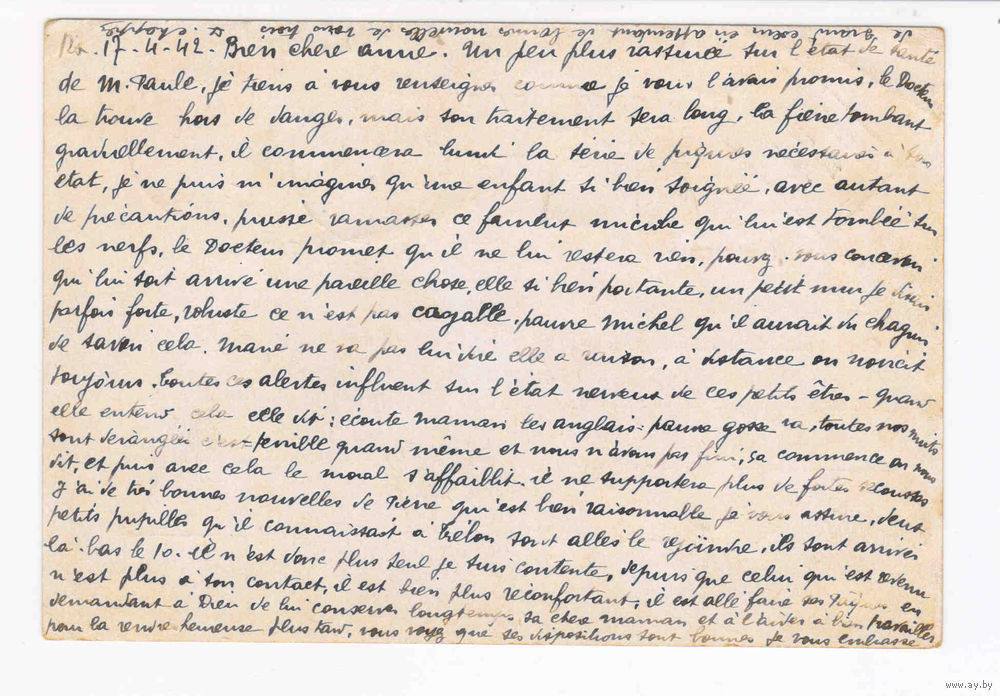 17-4-42- Bien chere anne. Un peu plus rassurée sur l'état de santé
de M. Paule, je tiens à vous renseigner comme je vous l'avais promis, le Docteur
la trouve hors de danger, mais son traitement sera long, la fièvre tombant
graduellement, il commencera lundi la série de piqures nécessaires à son
état, je ne puis m'imaginer qu'une enfant si bien soignée, avec autant
de précautions, puisse ramasser ce fameux microbe qui lui est tombée sur
les nerfs, le Docteur promet qu'il ne lui restera rien, pourq. vous concevoir
qui lui soit arrivé une pareille chose, elle si bien portante, un petit mur je disais
parfois forte, robuste ce n'est pas cagalle, pauvre Michel qu'il aurait du chagrin
de savoir cela. Marie ne va pas lui dire elle a raison, à distance on noircit
toujours. toutes ces alertes influent sur l'état nerveux de ces petits êtres - quand
elle entend cela elle dit: écoute maman les anglais: pauvre gosse va, toutes nos nuits
sont derangées c'est terrible quand même et nous n'avons pas fini, sa commence on nous
dit, et puis avec cela le moral s'affaillit. il ne supportera plus de fortes secousses
J'ai de très bonnes nouvelles de Pierre qui est bien raisonnable je vous assure, deux
petits pupilles qu'il connaissait à Trélon sont allés le rejoindre, ils sont arrivés
là-bas le 10. il n'est donc plus seul je suis contente, depuis que celui qui est revenu
n'est plus à son contact, il est bien plus réconfortant, il est allé faire ses Pâques en
demandant à Dieu de lui conserver longtemps sa chere maman et à l'aider à bien travailler
pour la rendre heureuse plus tard, vous voyez que ses dispositions sont bonnes je vous embrasse
de grand coeur en attendant de bonnes nouvelles de vous trois
www.ay.by